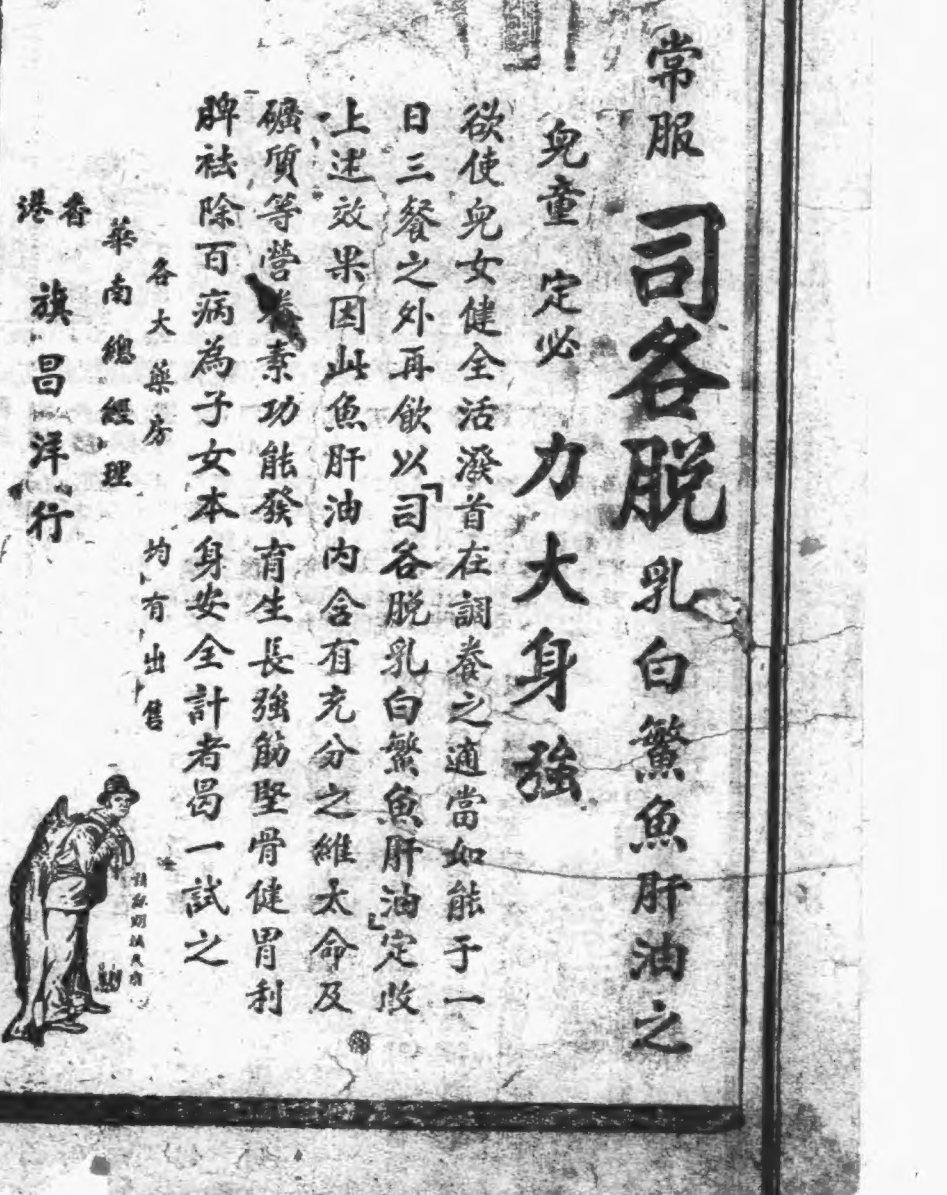 常服司各脱乳白鰵魚肝油之
兒童定必力大身強
欲使兒女健全活潑首在調養之適當如能于一
日三餐之外再飲以「司各脱乳白鰵魚肝油」定收
上述效果因此魚肝油内含有充分之維太命及
礦质等营養素功能發育生長強筋堅骨健胃利
脾祛除百病為子女本身安全計者曷一試之
各大藥房均有出售
華南總經理
香港
旗昌洋行